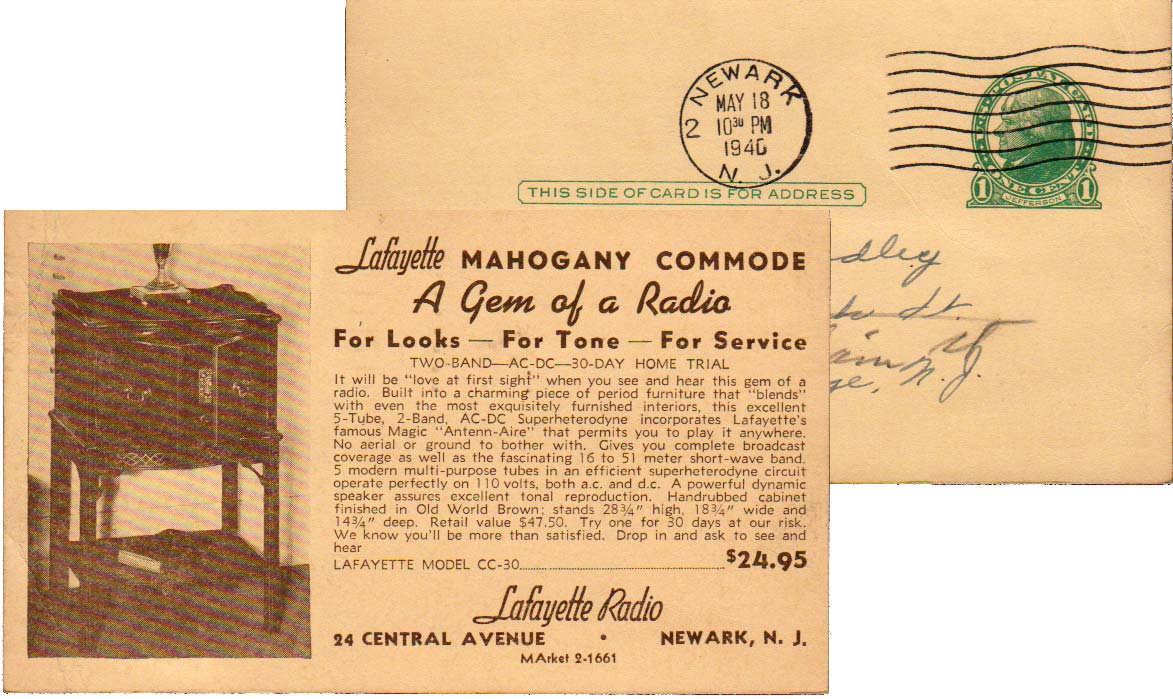 2 NEWARK
MAY 18
10 30 PM
1940
N. J.
U·S·POSTAL CARD·
ONE CENT
1 JEFFERSON 1
THIS SIDE OF CARD IS FOR ADDRESS
dley
St.
N. J.
Lafayette MAHOGANY COMMODE
A Gem of a Radio
For Looks — For Tone — For Service
TWO-BAND—AC-DC—30-DAY HOME TRIAL
It will be "love at first sight" when you see and hear this gem of a
radio. Built into a charming piece of period furniture that "blends"
with even the most exquisitely furnished interiors, this excellent
5-Tube, 2-Band, AC-DC Superheterodyne incorporates Lafayette's
famous Magic "Antenn-Aire" that permits you to play it anywhere.
No aerial or ground to bother with. Gives you complete broadcast
coverage as well as the fascinating 16 to 51 meter short-wave band.
5 modern multi-purpose tubes in an efficient superheterodyne circuit
operate perfectly on 110 volts, both a.c. and d.c. A powerful dynamic
speaker assures excellent tonal reproduction. Handrubbed cabinet
finished in Old World Brown; stands 28¾" high, 18¾" wide and
14¾" deep. Retail value $47.50. Try one for 30 days at our risk.
We know you'll be more than satisfied. Drop in and ask to see and
hear
LAFAYETTE MODEL CC-30..............................$24.95
Lafayette Radio
24 CENTRAL AVENUE • NEWARK, N. J.
MArket 2-1661